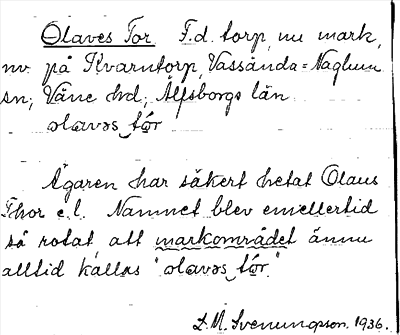 Olaves Tor F.d. torp, nu mark,
nv på Kvarntorp, Vassända=Naglum
sn; Väne hd; Älfsborgs län
olavəs tór
Ägaren har säkert hetat Olaus
Thor e.l. Namnet blev emellertid
så rotat att markområdet ännu
alltid kallas "olavəs tór."
D.M. Svenungsson. 1936.